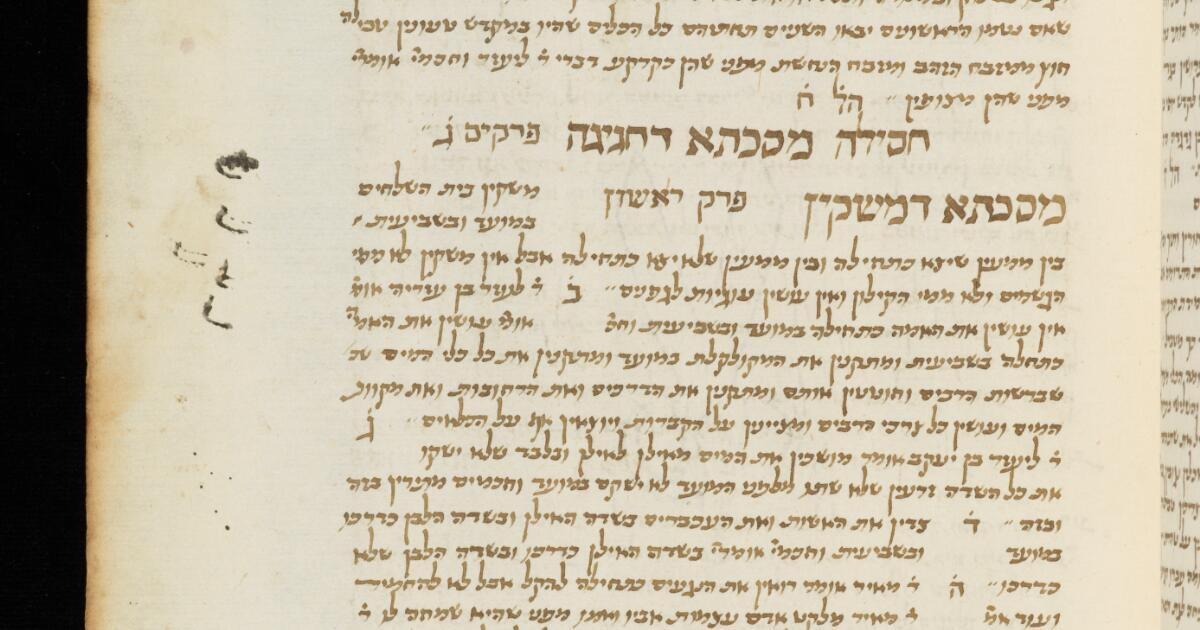 שאם נטמו הראשונים יבאו השניים תחתיהם כל הכלים שהיו במקדש טעונין טבילה
חוץ ממזבח הזהב ומזבח הנחשת מפני שהן כקרקע דברי ר׳ ליעזר וחכמ׳ אומ׳
מפני שהן מצופין הל׳ ח׳
חסילה מסכתא דחגיגה פרקים ג׳
מסכתא דמשקין פרק ראשון משקין בית השלחים
במועד ובשביעית
בין ממעין שיצא כתחילה ובין ממעין שלא יצא כתחילה אבל אין משקין לא ממי
הגשמים ולא ממי הקילון ואין עושין עוגיות לגפנים ב׳ ר׳ לעזר בן עזריה אומ׳
אין עושין את האמה כתחילה במועד ובשביעית וחכ׳ אומ׳ עושין את האמ׳
כתחלה בשביעית ומתקנין את המקולקלת במועד ומתקנין את כל כלי המים
שברשות הרבים וחוטטין אותם ומתקנין את הדרכים ואת הרחובות ואת מקוות
המים ועושין כל צרכי הרבים ומציינין על הקברות ויוצאין אף על הכלאים ג׳
ר׳ ליעזר בן יעקב אומר מושכין את המים מאילן לאילן ובלבד שלא ישקו
את כל השדה זרעין שלא שתו מלפני המועד לא ישקם במועד וחכמים מתירין בזה
ובזה ד׳ צדין את האשות ואת העכברים בשדה האילן ובשדה הלבן כדרכו
במועד ובשביעית וחכמ׳ אומר׳ בשדה האילן כדרכו ובשדה הלבן שלא
כדרכו ה׳ ר׳ מאיר אומר רואין את הנגעים כתחילה להקל אבל לא להחמיר
ועוד אמ׳ ר׳ מאיר מלקט אדם עצמות אביו ואמו מפני שהיא שמחה לו ר׳